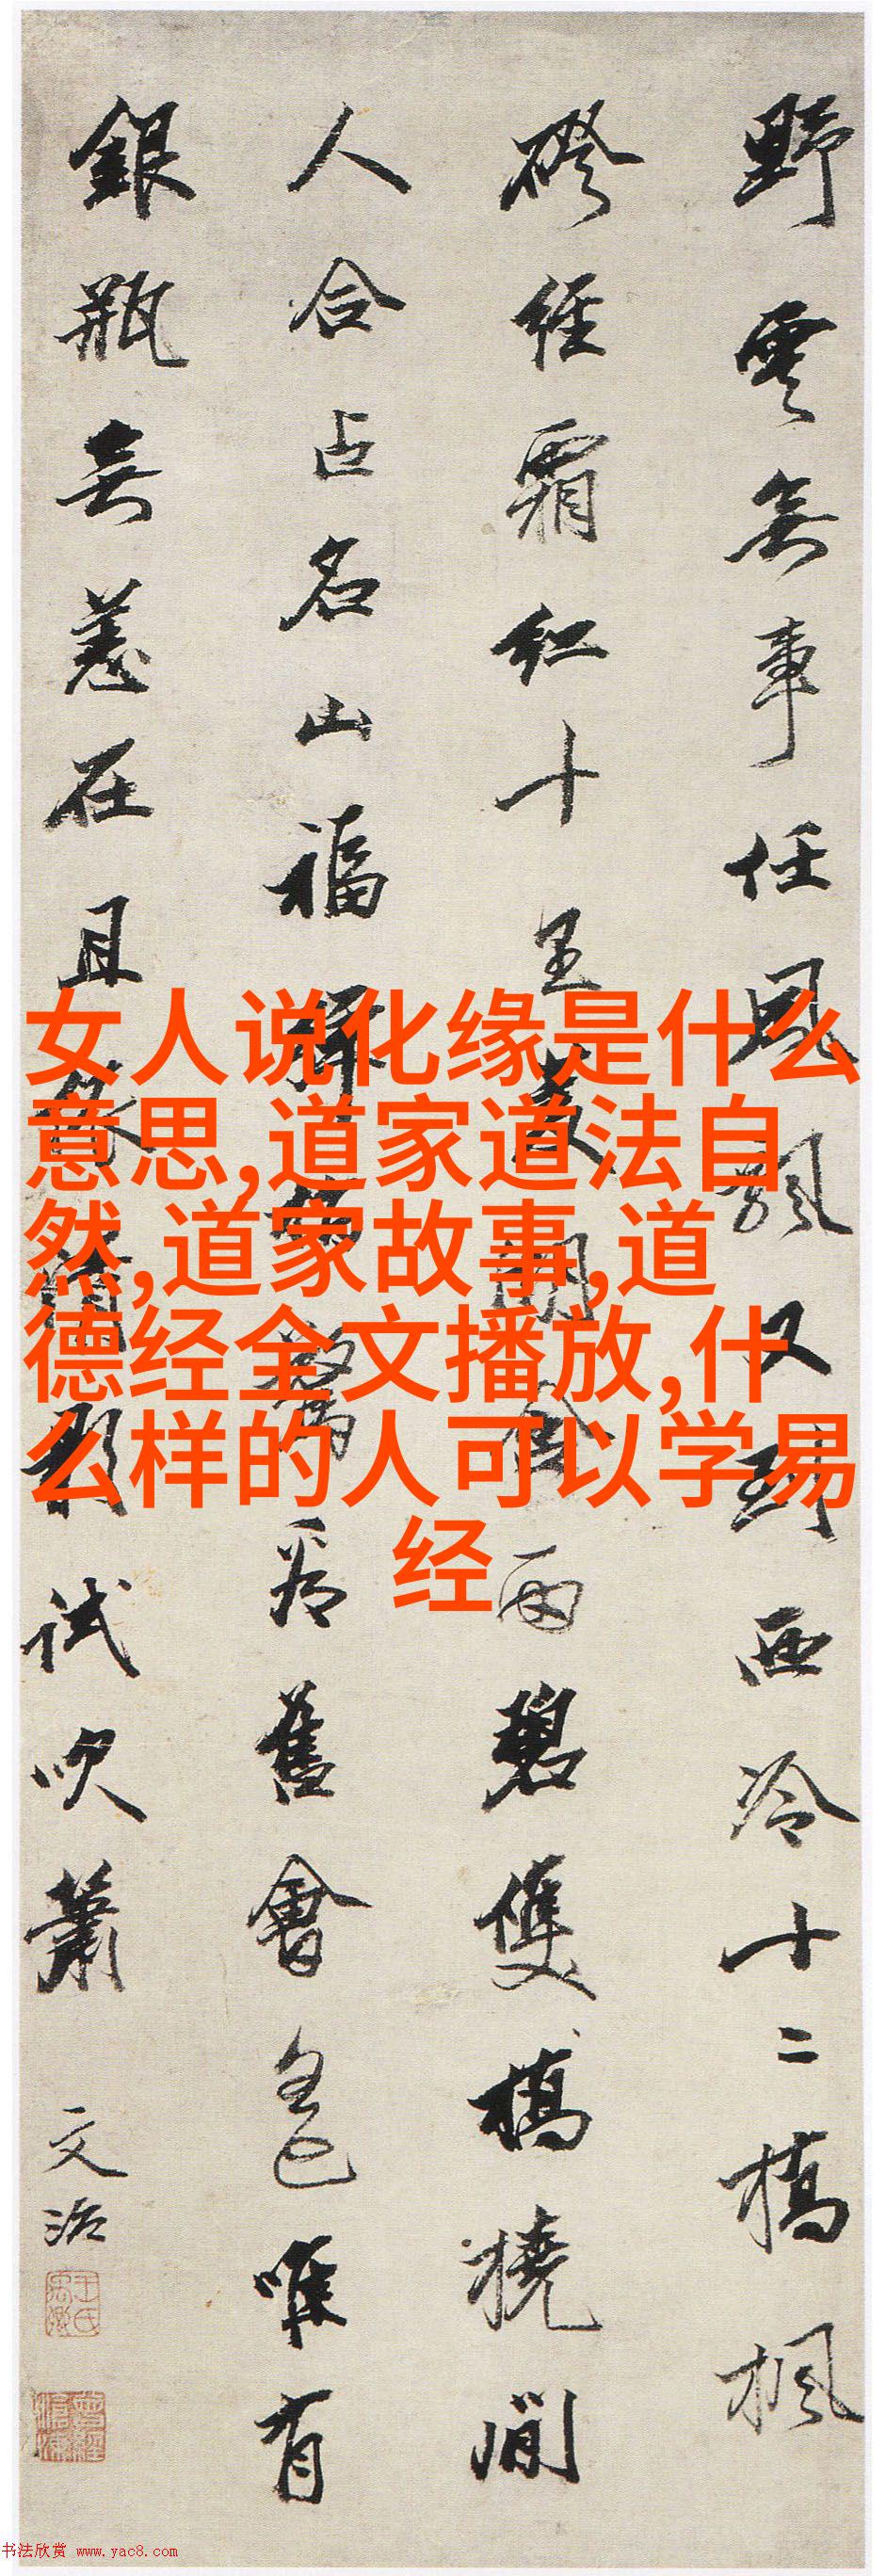 野雲無事任風飄又到西泠十二橋楓
磴經霜紅十里菱湖含雨碧雙橋橈閒
人合占名山福
爲舊會自已唯有
銀瓶無恙在且
試吹簫
文治
女人说化缘是什么
意思,道家道法自
然,道家故事,道
德经全文播放,什
么样的人可以学易
经
书法欣赏 www.yac8.com